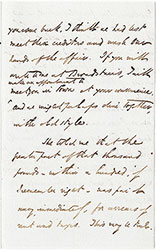 you come back, I think we had best
meet these creditors and wash our
hands of the affair. If you will
make time at Broadstairs, I will
make an appointment to
meet you in town at your convenience
and we might perhaps dine together
in the old style.
He told me that the
greater part of that thousand
pounds — within a hundred, if
I remember right — was paid
away immediately, for arrears of
rent and taxes. This may be